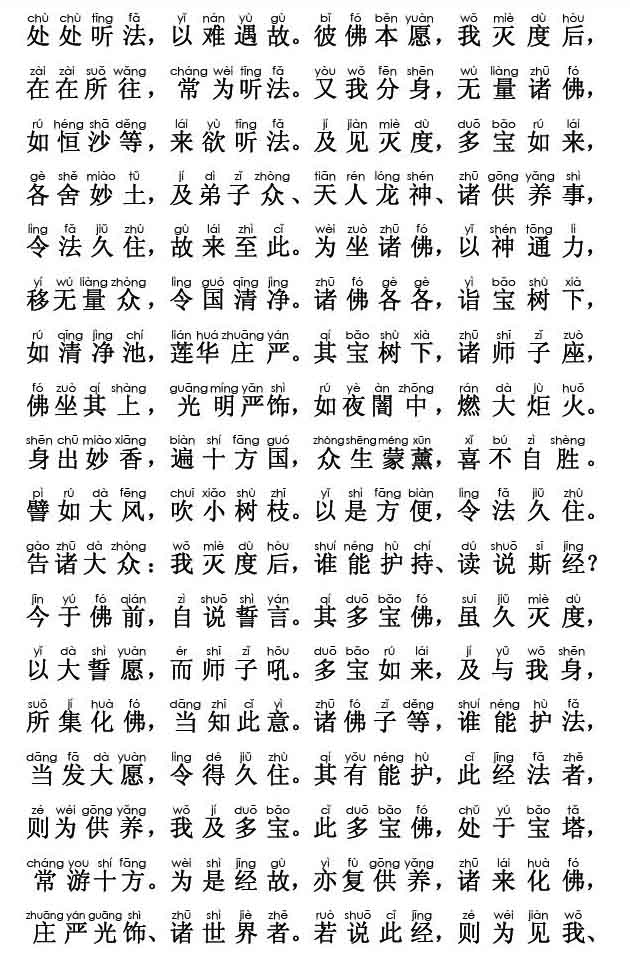 chù chù tīng fǎ yǐ nán yù gù bǐ fó běn yuàn wǒ miè dù hòu
处处听法，以难遇故。彼佛本愿，我灭度后，
zài zài suǒ wǎng cháng wèi tīng fǎ yòu wǒ fēn shēn wú liàng zhū fó
在在所往，常为听法。又我分身，无量诸佛，
rú héng shā děng lái yù tīng fǎ jí jiàn miè dù duō bǎo rú lái
如恒沙等，来欲听法。及见灭度，多宝如来，
gè shě miào tǔ jí dì zǐ zhòng tiān rén lóng shén zhū gōng yǎng shì
各舍妙土，及弟子众、天人龙神、诸供养事，
lìng fǎ jiǔ zhù gù lái zhì cǐ wèi zuò zhū fó yǐ shén tōng lì
令法久住，故来至此。为坐诸佛，以神通力，
yí wú liàng zhòng lìng guó qīng jìng zhū fó gè gè yì bǎo shù xià
移无量众，令国清净。诸佛各各，诣宝树下，
rú qīng jìng chí lián huá zhuāng yán qí bǎo shù xià zhū shī zǐ zuò
如清净池，莲华庄严。其宝树下，诸师子座，
fó zuò qí shàng guāng míng yān shì rú yè àn zhōng rán dà jù huǒ
佛坐其上，光明严饰，如夜闇中，燃大炬火。
shēn chū miào xiāng biàn shí fāng guó zhòng shēng méng xūn xǐ bú zì shèng
身出妙香，遍十方国，众生蒙薰，喜不自胜。
pì rú dà fēng chuī xiǎo shù zhī yǐ shì fāng biàn lìng fǎ jiǔ zhù
譬如大风，吹小树枝。以是方便，令法久住。
gào zhū dà zhòng wǒ miè dù hòu shuí néng hù chí dú shuō sī jīng
告诸大众：我灭度后，谁能护持、读说斯经？
jīn yú fó qián zì shuō shì yán qí duō bǎo fó suī jiǔ miè dù
今于佛前，自说誓言。其多宝佛，虽久灭度，
yǐ dà shì yuàn ér shī zǐ hǒu duō bǎo rú lái jí yǔ wǒ shēn
以大誓愿，而师子吼。多宝如来，及与我身，
suǒ jí huà fó dāng zhī cǐ yì zhū fó zǐ děng shuí néng hù fǎ
所集化佛，当知此意。诸佛子等，谁能护法，
dāng fā dà yuàn lìng dé jiǔ zhù qí yǒu néng hù cǐ jīng fǎ zhě
当发大愿，令得久住。其有能护，此经法者，
zé wéi gōng yǎng wǒ jí duō bǎo cǐ duō bǎo fó chǔ yú bǎo tǎ
则为供养，我及多宝。此多宝佛，处于宝塔，
cháng you shí fāng wèi shì jīng gù yì fù gōng yǎng zhū lái huà fó
常游十方。为是经故，亦复供养，诸来化佛，
zhuāng yán guāng shì zhū shì jiè zhě ruò shuō cǐ jīng zé wéi jiàn wǒ
庄严光饰、诸世界者。若说此经，则为见我、